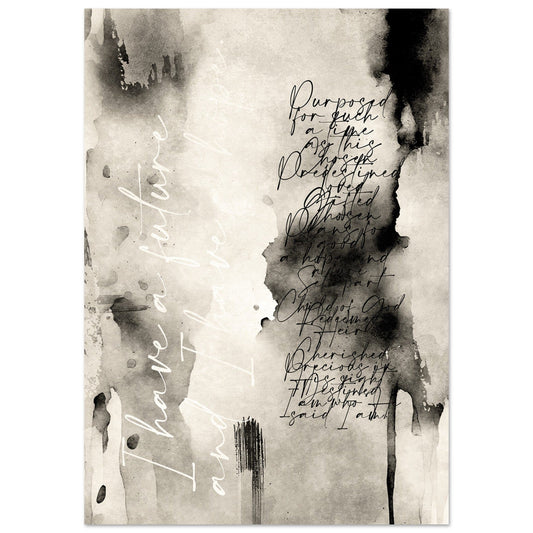 I have a future
and I have hope
Purposed
for such
a time
as this
Chosen
Predestined
Loved
Gifted
Chosen
Plans for
good
a hope and
Set Apart
Child of God
Redeemed
Heir
Cherished
Precious in
His sight
Destined
I am who He
said I am